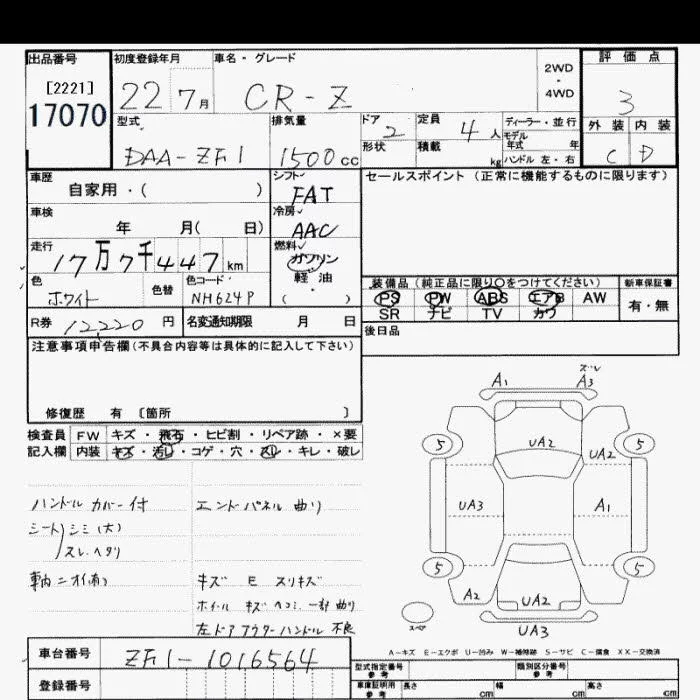 出品番号 初度登録年月 車名・グレード 2WD・4WD 評価点
[2221]
17070 22 7月 CR-Z 3
型式 排気量 ドア 2 定員 4人 ディーラー・並行 外装 内装
モデル年式 年
DAA-ZF1 1500cc 形状 積載 kg ハンドル 左・右 C D
車歴 シフト セールスポイント(正常に機能するものに限ります)
自家用・( ) FAT
車検 冷房
年 月( 日) AAC
走行 燃料
17万7千447km ガソリン
軽・油
色 色替 色コード ( ) 装備品(純正品に限り○をつけてください) 新車保証書
ホワイト NH624P PS PW ABS エアB AW 有・無
SR ナビ TV カワ
R券 12220円 名変通知期限 月 日 後日品
注意事項申告欄(不具合内容等は具体的に記入して下さい)
修復歴 有 〔箇所 〕
検査員 FW キズ・飛石・ヒビ割・リペア跡・×要
記入欄 内装 キズ・汚レ・コゲ・穴・スレ・キレ・破レ
ハンドルカバー付 エンドパネル曲り
シート シミ(大)
スレ.ヘタリ
車内ニオイ有 キズ E スリキズ
ホイール キズ ヘコミ 一部曲り
左ドアアウターハンドル不良
ズレ
A1 A3
5 UA2 UA2 5
UA3 A1
5 5
A2 UA2
スペア UA3
A-キズ E-エクボ U-凹み W-補修跡 S-サビ C-腐食 XX-交換済
車台番号 ZF1-1016564
登録番号
型式指定番号 参考 類別区分番号 参考
車庫証明用 参考 長さ cm 幅 cm 高さ cm